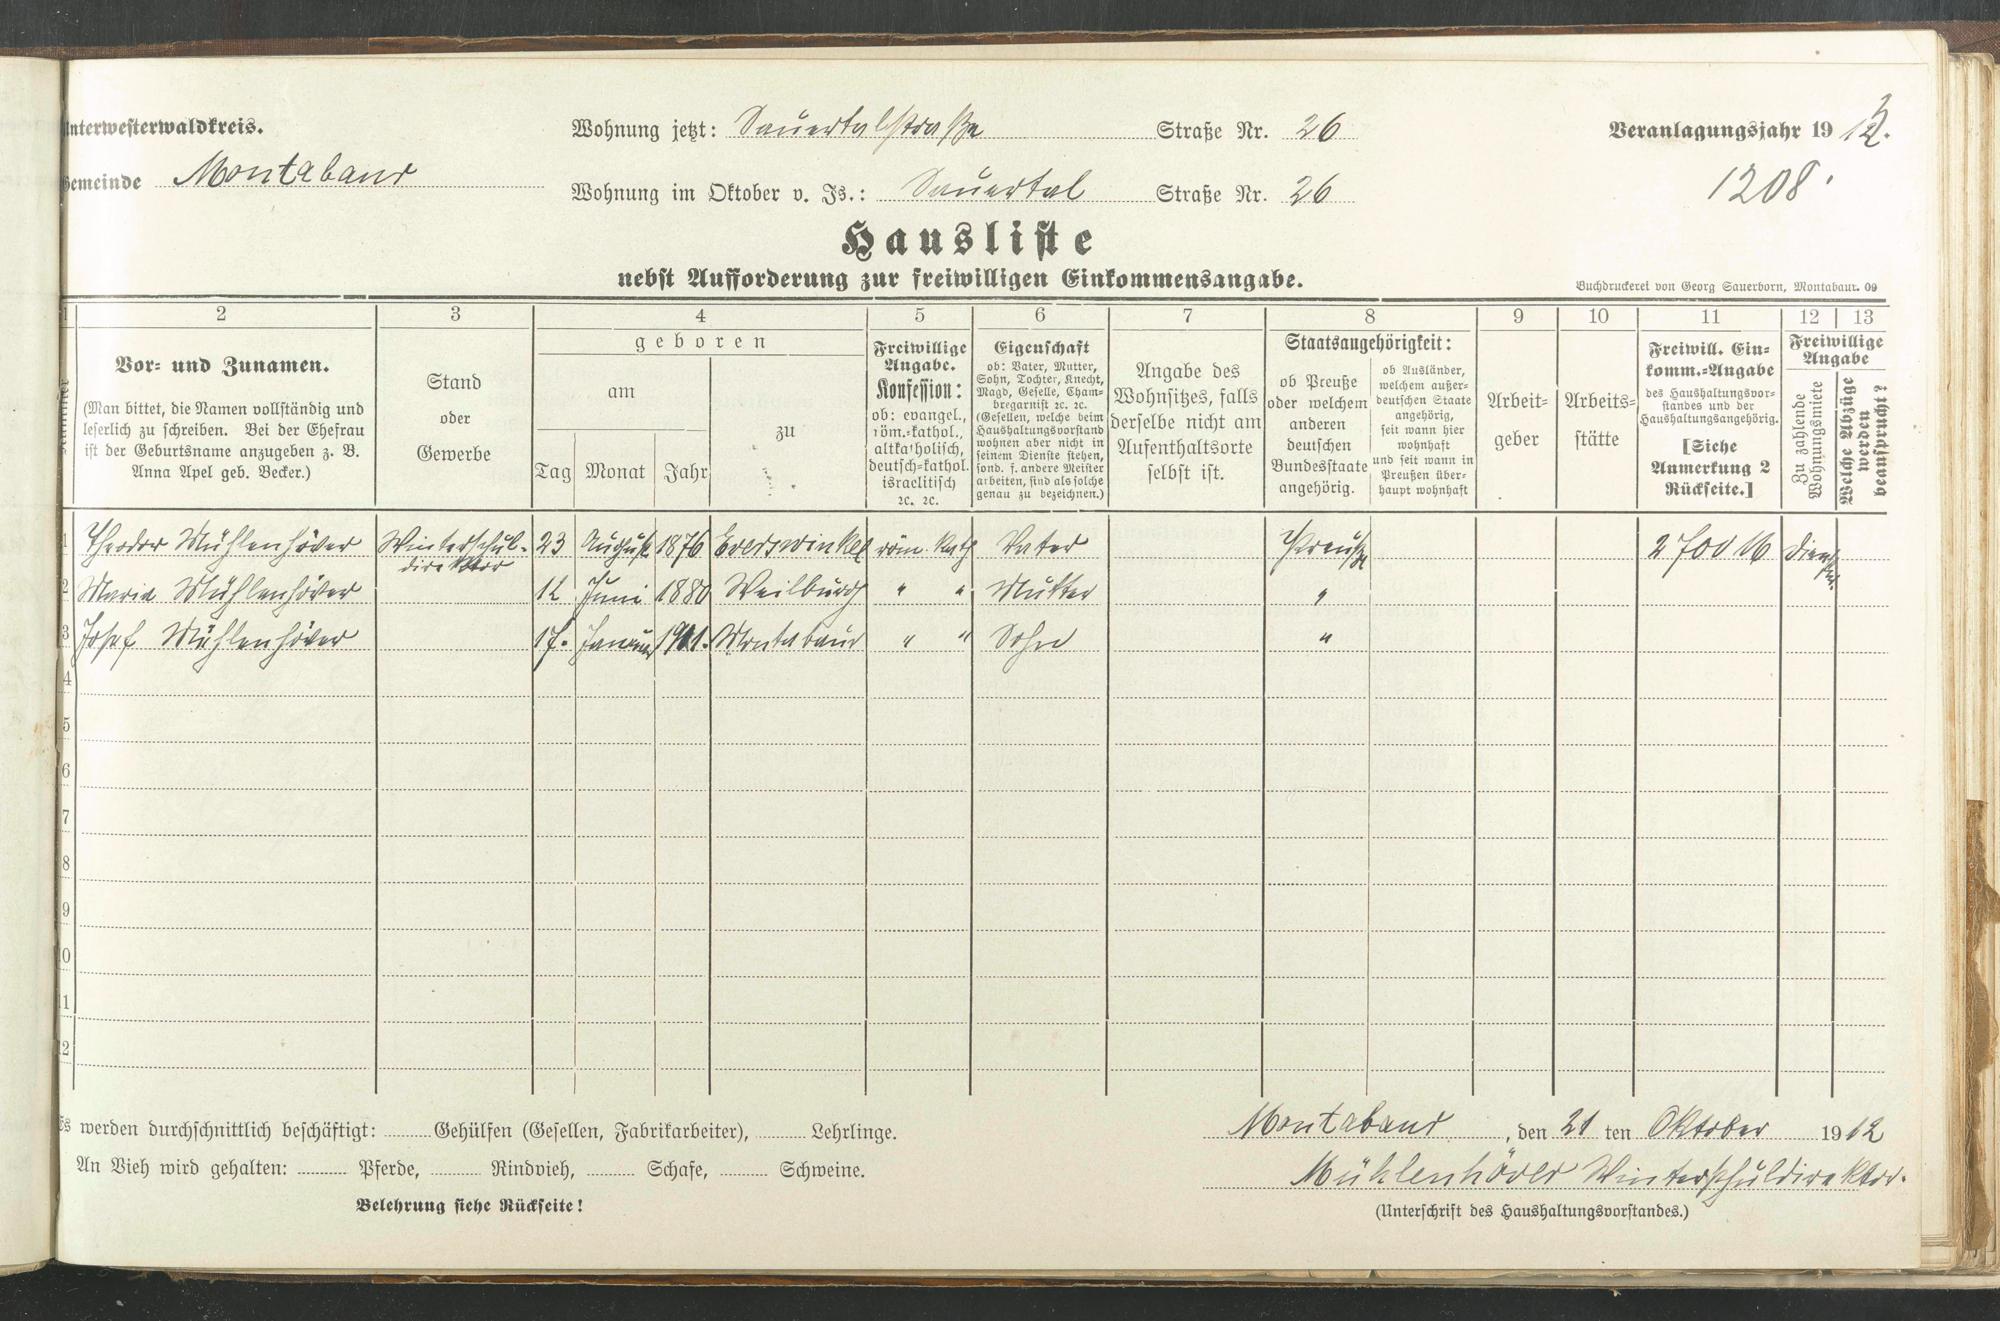 Unterwesterwaldkreis.
Wohnung jetzt: Sauertalstraße Straße Nr. 26
Veranlagungsjahr 1913.
Gemeinde Montabaur
Wohnung im Oktober v. Js.: Sauertal Straße Nr. 26
1208.
Hausliste
nebst Aufforderung zur freiwilligen Einkommensangabe.
Buchdruckerei von Georg Sauerborn, Montabaur. 09
1 2 3 4 5 6 7 8 9 10 11 12 13
Nummer
Vor- und Zunamen.
(Man bittet, die Namen vollständig und
leserlich zu schreiben. Bei der Ehefrau
ist der Geburtsname anzugeben z. B.
Anna Apel geb. Becker.)
Stand
oder
Gewerbe
geboren
am
Tag Monat Jahr
zu
Freiwillige
Angabe.
Konfession:
ob: evangel.,
röm.-kathol.,
altkatholisch,
deutsch-kathol.
israelitisch
ꝛc. ꝛc.
Eigenschaft
ob: Vater, Mutter,
Sohn, Tochter, Knecht,
Magd, Geselle, Cham-
bregarnist ꝛc. ꝛc.
(Gesellen, welche beim
Haushaltungsvorstand
wohnen aber nicht in
seinem Dienste stehen,
sond. f. andere Meister
arbeiten, sind als solche
genau zu bezeichnen.)
Angabe des
Wohnsitzes, falls
derselbe nicht am
Aufenthaltsorte
selbst ist.
Staatsangehörigkeit:
ob Preuße
oder welchem
anderen
deutschen
Bundesstaate
angehörig.
ob Ausländer,
welchem außer-
deutschen Staate
angehörig,
seit wann hier
wohnhaft
und seit wann in
Preußen über-
haupt wohnhaft
Arbeit-
geber
Arbeits-
stätte
Freiwill. Ein-
komm.-Angabe
des Haushaltungsvor-
standes und der
Haushaltungsangehörig.
[Siehe
Anmerkung 2
Rückseite.]
Freiwillige
Angabe
Zu zahlende
Wohnungsmiete
Welche Abzüge
werden
beansprucht?
1 Theodor Mühlenhöver Winterschul- 23 August 1876 Everswinkel röm. kath Vater Preuße 2700 M
direktor
2 Maria Mühlenhöver 12 Juni 1880 Weilburg " " Mutter "
3 Josef Mühlenhöver 17. Januar 1911. Montabaur " " Sohn "
4
5
6
7
8
9
10
11
12
Es werden durchschnittlich beschäftigt: Gehülfen (Gesellen, Fabrikarbeiter), Lehrlinge.
Montabaur, den 21 ten Oktober 1912
An Vieh wird gehalten: Pferde, Rindvieh, Schafe, Schweine.
Mühlenhöver Winterschuldirektor.
Belehrung siehe Rückseite!
(Unterschrift des Haushaltungsvorstandes.)